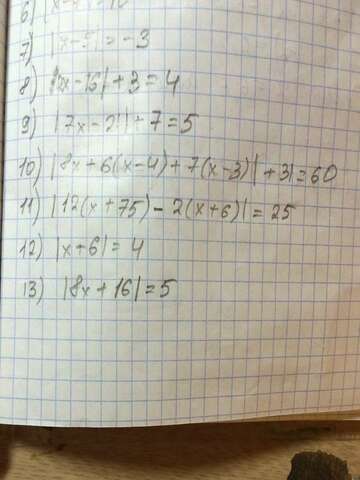 6)
7) |x-5| = -3
8) |2x-16| + 3 = 4
9) |7x-21| + 7 = 5
10) |8x + 6(x-4) + 7(x-3)| + 31 = 60
11) |12(x+75) - 2(x+6)| = 25
12) |x+6| = 4
13) |8x + 16| = 5